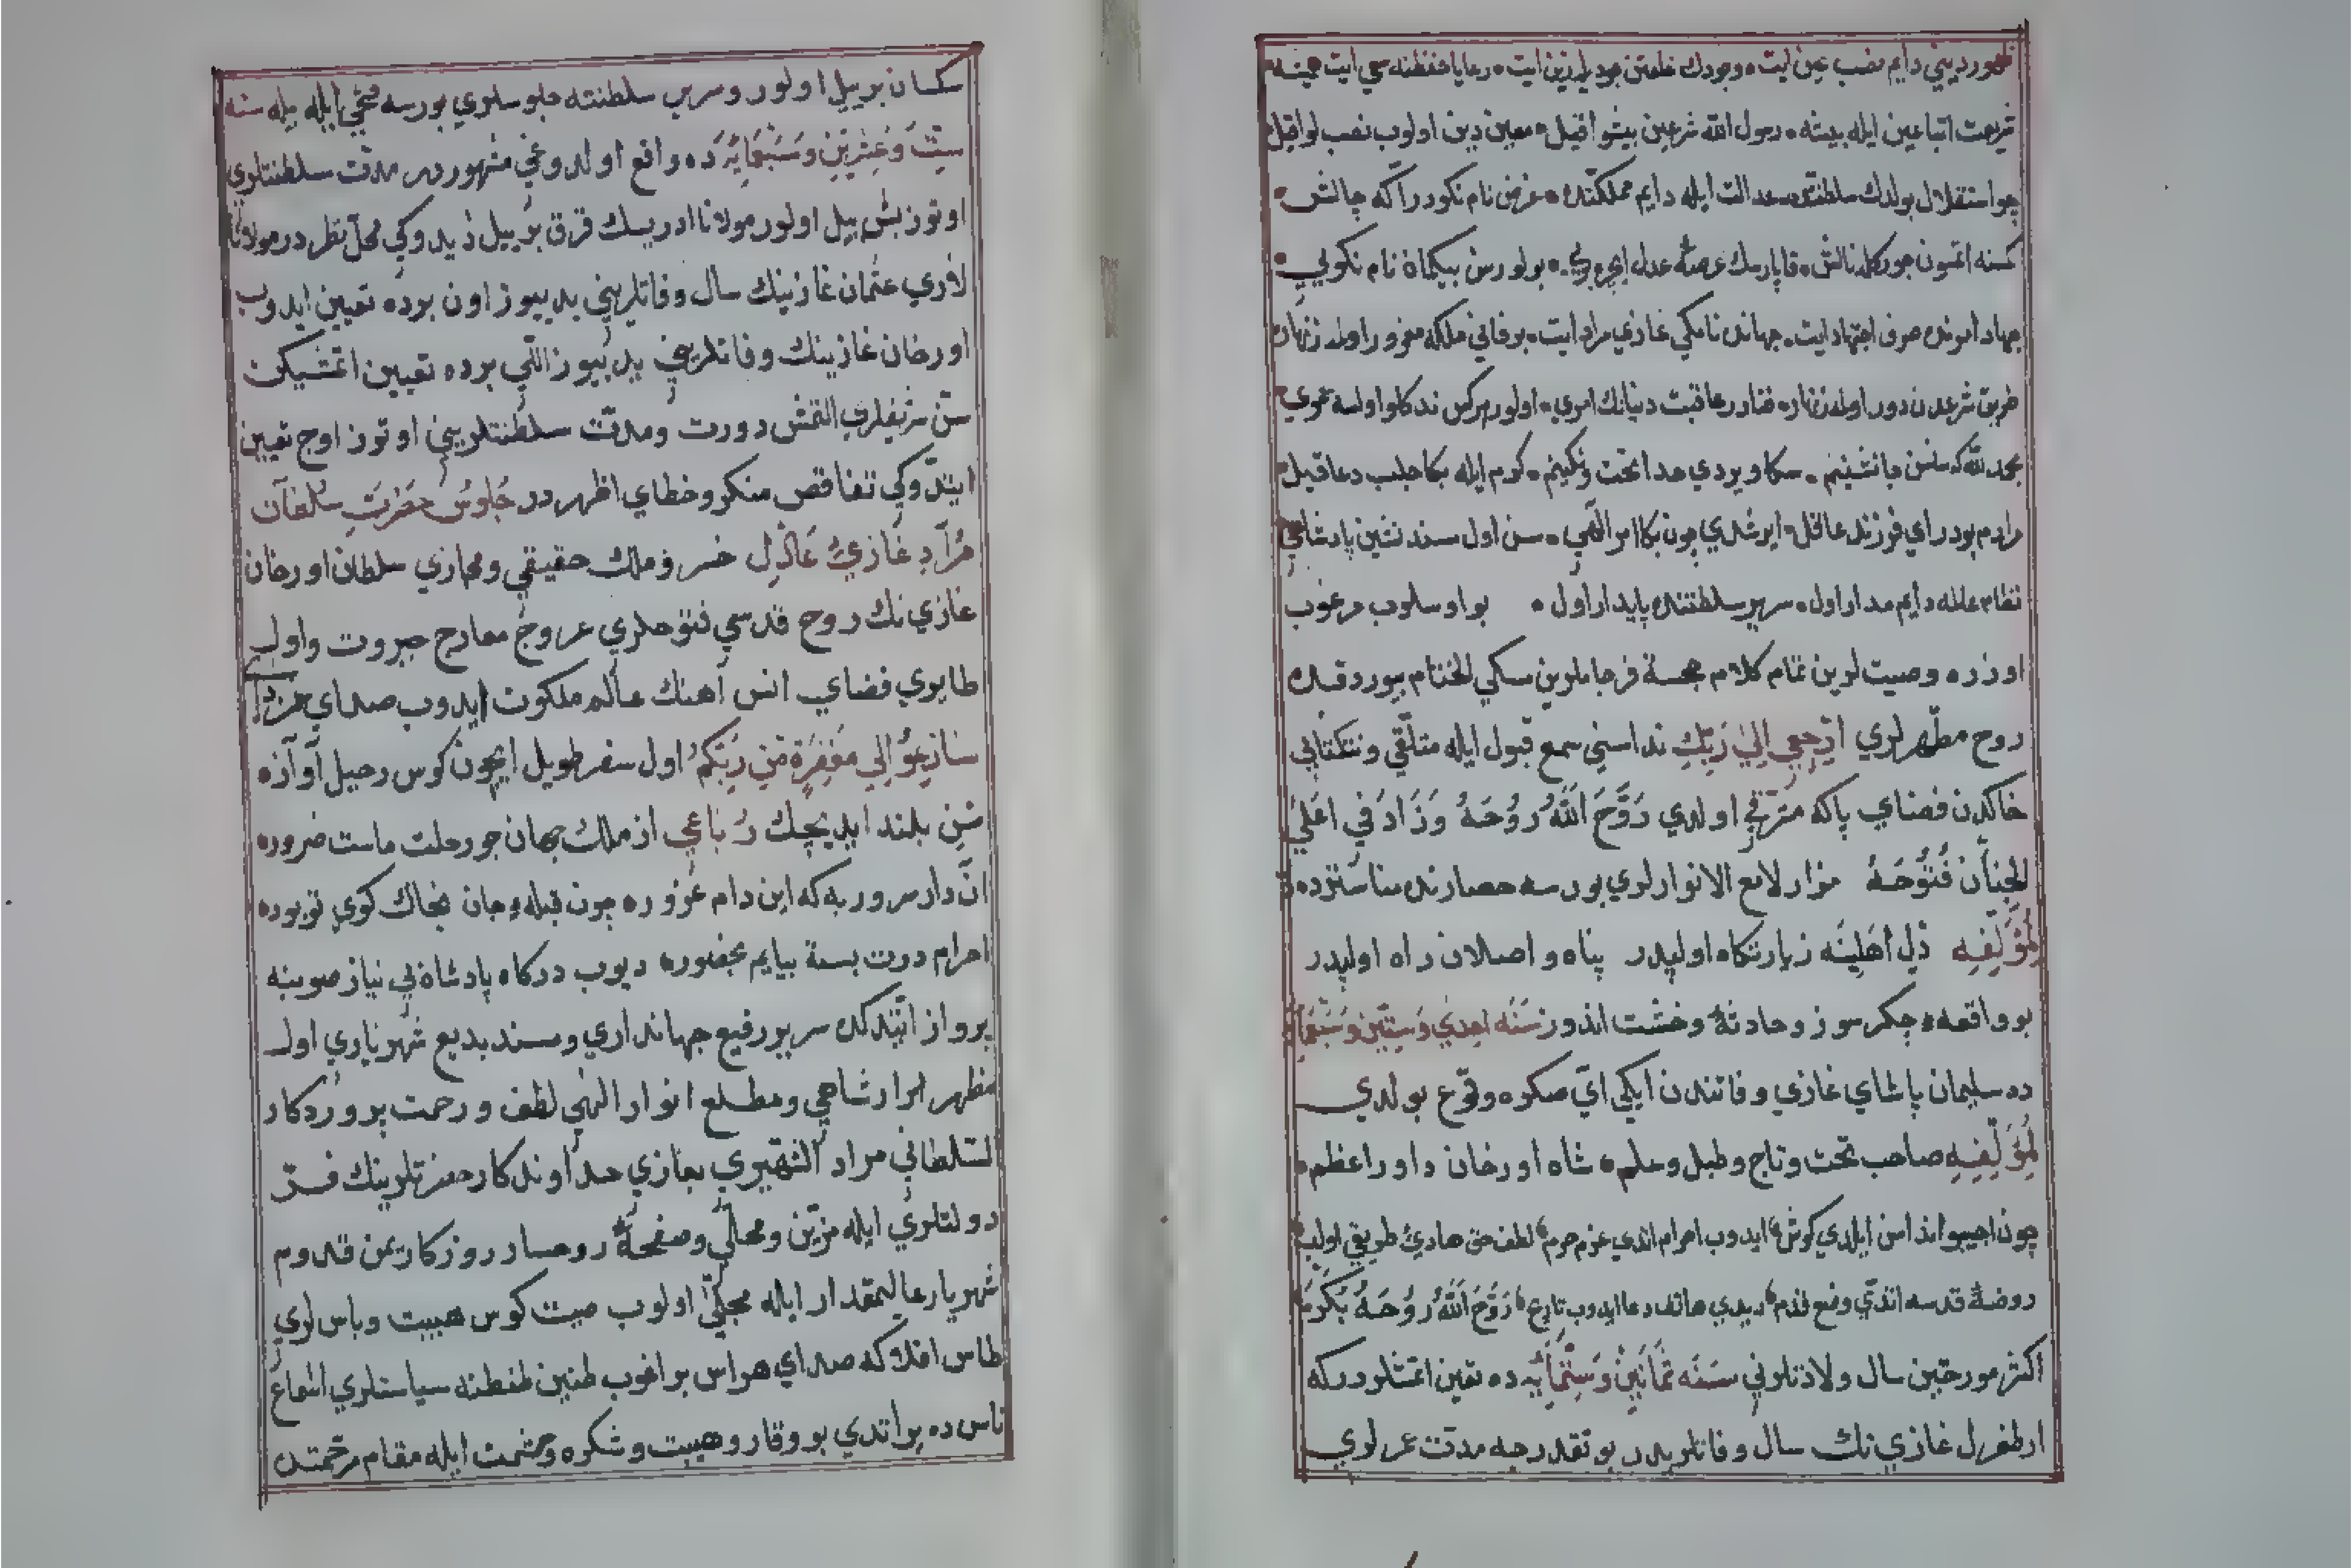 ظهور دینی دایم نصب عین ایت • وجودك خلعتن جود ایله زین ایت • رعایا حفظنه سعی ایت همیشه
شریعت اتباعین ایله پیشه • رسول الله شرعین پیشوا قیل • معین دین اولوب نصب لوا قیل
چو استقلال بولدك سلطنته عدالت ایله دایم مملکتده • غرض نام نکودر اکه چالش •
کسنه اتمسون جورکله نالش • قاپارسك عرصهٔ عدل ایچره کوی • بولورسن بیکماه نام نکویی •
جهاد امرنده صرف اجتهاد ایت • جهانده نامکی غازی مراد ایت • بو فانی ملکه مغرور اولمه زنهار
طریق شرعدن دور اولمه زنهار • فنادر عاقبت دنیانك امری • اولور هرکس ندکلو اولسه عمری
بحمد الله که سنسن جانشینم • سکا ویردی خدا تخت و نکینم • کرم ایله بکا جلب دعا قیل
مرادم بودر ای فرزند عاقل • ایرشدی چون بکا امر الهی • سن اول مسند نشین پادشاهی
نظام علله دایم مدار اول • سریر سلطنتده پایدار اول • بو اوسلوب مرغوب
اوزره وصیت لرین تمام کلام خجسته فرجاملرین مسکی الختام بیوردقده
روح مطهرلری ارجعی الی ربك نداسنی سمع قبول ایله متلقی و تنکنای
خاکدن فضای پاکه مترقی اولدی روح الله روحه وزاد فی اعلی
الجنان فتوحه مزار لامع الانوارلری بورسه حصارنده مناسترده در
لمؤلفه دل اهلینه زیارتکاه اولپدر پناه واصلان راه اولپدر
بو واقعهٔ جکرسوز و حادثهٔ وخشت اندوز سنه احدی وستین وسبعمایه
ده سلیمان پاشای غازی وفاتندن ایکی ای صکره وقوع بولدی
لمؤلفه صاحب تخت وتاج وطبل وعلم • شاه اورخان داور اعظم •
چون اجیبوا نداسن ایلدی کوش ایدوب احرام اندی عزم حرم لطف حق هادی طریقی اولب
روضهٔ قدسه اندی وضع قدم دیدی هاتف دعا ایدوب تاریخ روح الله روحه بکرم
اکثر مورخین سال ولادتلرنی سنه ثمانین وستمایه ده تعین اتمشلردرکه
ارطغرل غازی نك سال وفاتلریدر بو تقدرجه مدت عمرلری
سکسان بر ییل اولور وسریر سلطنته جلوسلری بورسه فتحی ایله بیله سنه
ست وعشرین وسبعمایه ده واقع اولدوغی مشهوردر مدت سلطنتلری
اوتوز بش ییل اولور مولانا ادریسك قرق بر ییل دیدوکی محل نظردر مولانا
لاری عثمان غازینك سال وفاتلرینی یدییوز اون برده تعیین ایدوب
اورخان غازینك وفاتلرینی یدییوز اللی برده تعیین اتمشیکن
سن شریفلری التمش دورت ومدت سلطنتلرینی اوتوز اوج تعیین
ایتدوکی تناقص منکر وخطای اظهردر جلوس حضرت سلطان
مراد غازی عادل خسرو ملك حقیقی ومجازی سلطان اورخان
غازی نك روح قدسی فتوحلری عروج معارج جبروت واول
طایری فضای انس آهنك عالم ملکوت ایدوب صدای
سارعوا الی مغفرة من ربکم اول سفر طویل ایچون کوس رحیل آوازه
سن بلند ایدیجك رباعی از ملك جهان جو رحلت ماست ضروره
ان دار سرور به که این دام غروره چون قبلهٔ جان بخاك کوی تو بوره
احرام درت بسته بیایم بحضوره دیوب درکاه پادشاه بی نیاز صوبنه
پرواز اتتدکده سریر رفیع جهانداری ومسند بدیع شهریاری اول
مظهر اسرار شاهی ومطلع انوار الهی لطف ورحمت پروردکار
السلطانی مراد الشهیری بغازی خداوندکار حضرتلرینك فر
دولتلری ایله مزین ومحلی وصفحهٔ روحسار روزکار یمن قدوم
شهریار عالیمقدار ایله مجلی اولوب صیت کوس هیبت وباس لری
طاس افلاکه صدای هراس براغوب طنین طنطنه سیاستلری اسماع
ناس ده یر اتدی بو وقار وهیبت وشکوه وحشمت ایله مقام مرحمتده